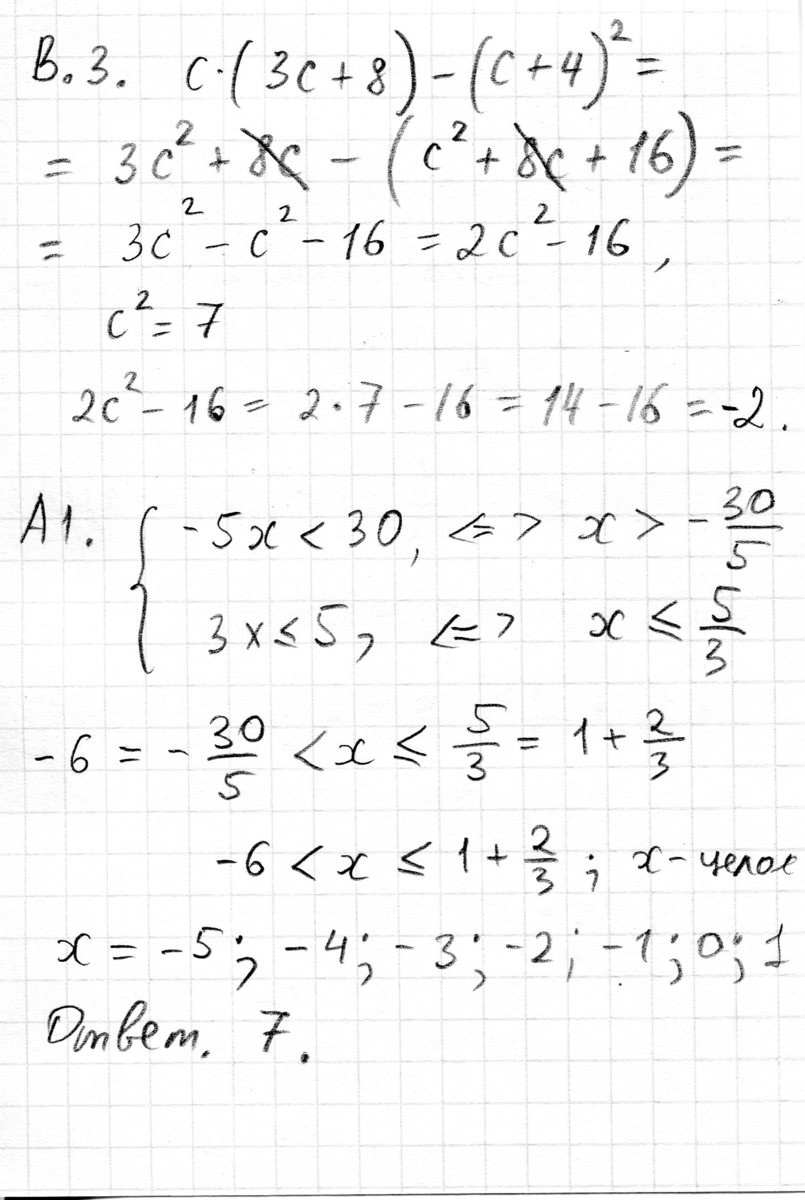 В.3. c·(3c+8)-(c+4)²=
= 3c²+8c-(c²+8c+16)=
= 3c²-c²-16=2c²-16,
c²=7
2c²-16=2·7-16=14-16=-2.
А1. { -5x<30, <=> x>-30/5
3x≤5, <=> x≤5/3
-6=-30/5<x≤5/3=1+2/3
-6<x≤1+2/3; x-целое
x=-5;-4;-3;-2;-1;0;1
Ответ. 7.